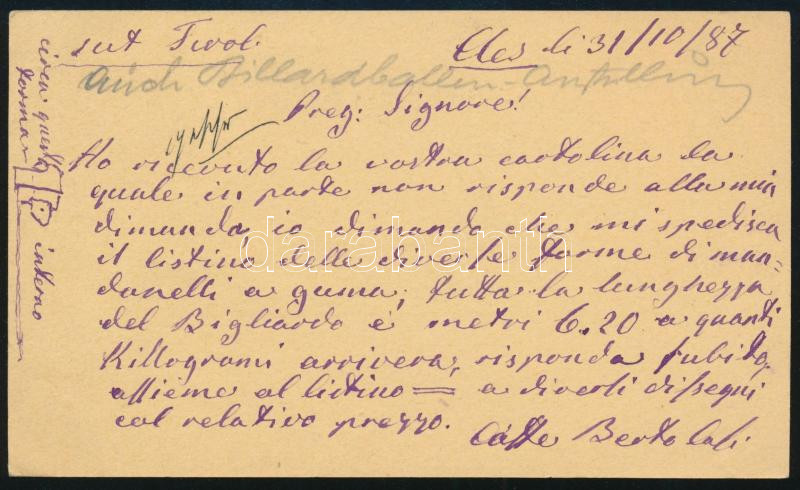 süt Tirol.
Cles li 31/10/87
Auch Billardballen-Anstellung
Preg: Signore!
Ho ricevuto la vostra cartolina da
quale in parte non risponde alla mia
dimanda io dimando che mi spedisca
il listino delle diverse forme di man-
danelli a guma, tutta la lunghezza
del Bigliardo è metri 6.20 a quanti
Killogrami arrivera, risponda subito,
assieme al listino = a diversi dissegni
col relativo prezzo.
Caffe Bertolasi
circa questa
forma
interno
darabanth